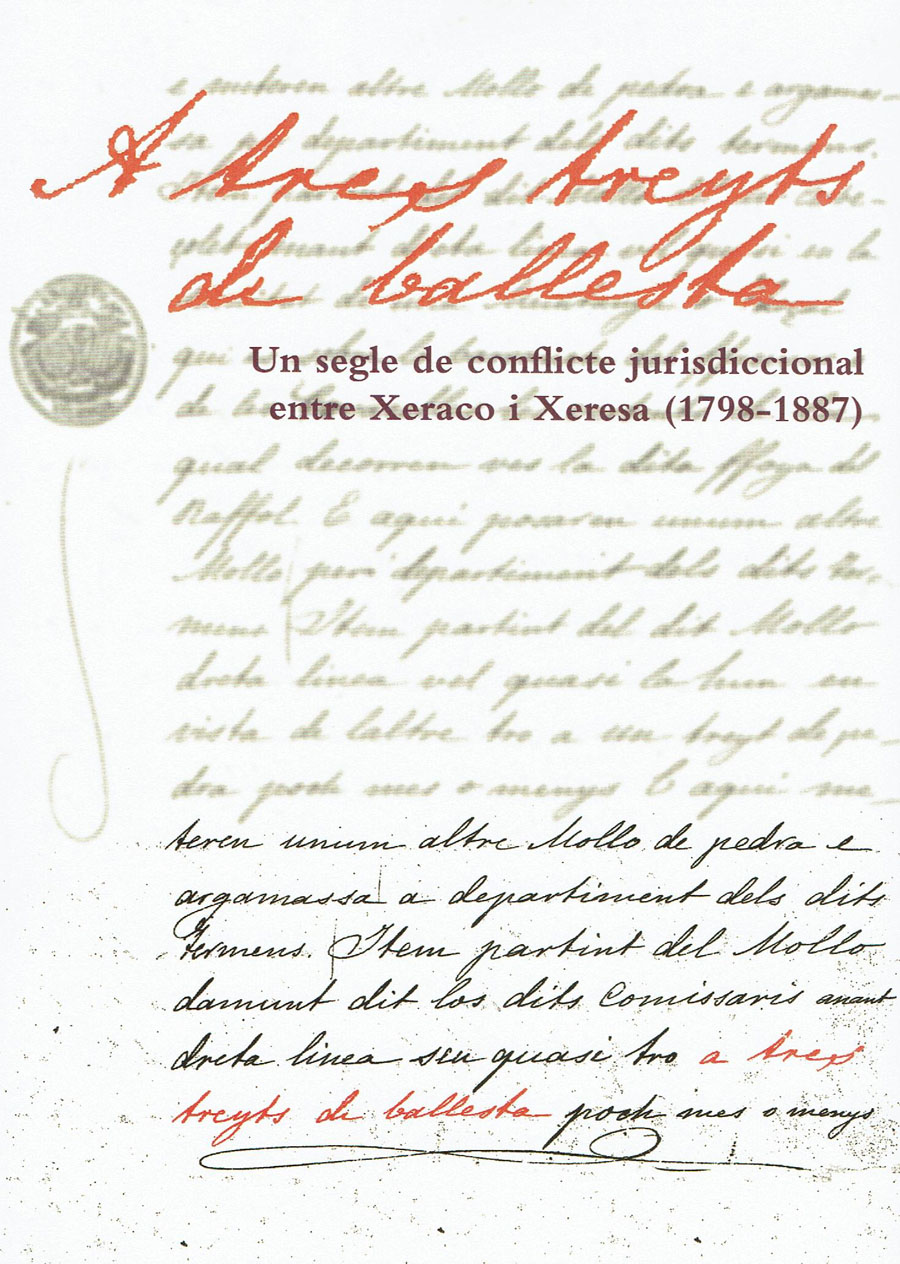 A trexs treyts
de ballesta
Un segle de conflicte jurisdiccional
entre Xeraco i Xeresa (1798-1887)
e meteren altre Mollo de pedra e argamas-
sa per departiment dels dits termens.
Item
dreta linea quasi en la
qui
de
qual decorren ves la dita ffoya del
Raffol. E aqui posaren unum altre
Mollo per departiment dels dits ter-
mens Item partint del dit Mollo
dreta linea vel quasi la hum en
vista de laltre tro a un treyt de pe-
dra poch mes o menys E aqui me-
teren unum altre Mollo de pedra e
argamassa a departiment dels dits
termens. Item partint del Mollo
damunt dit los dits Comissaris anant
dreta linea seu quasi tro a trexs
treyts de ballesta poch mes o menys